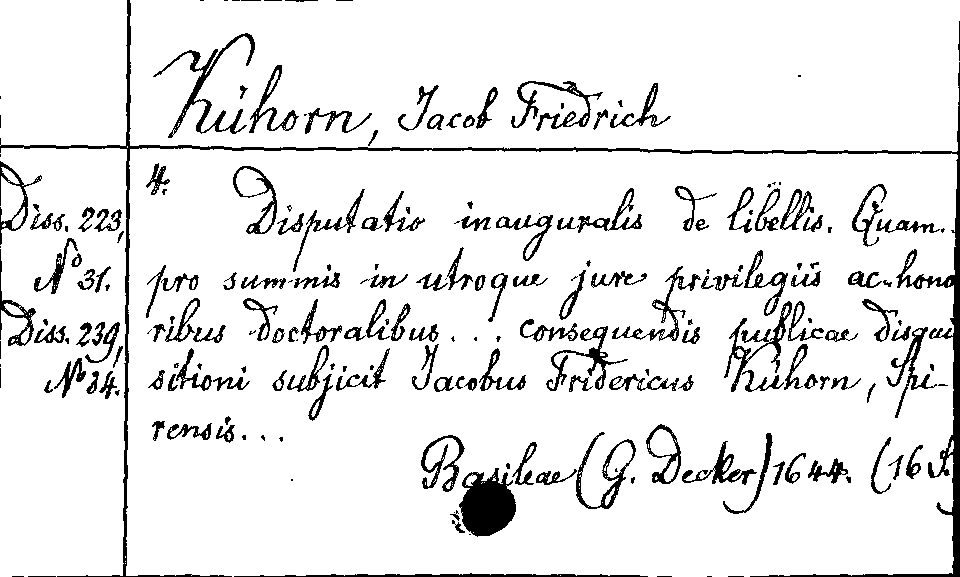 Kühorn, Jacob Friedrich
4.
Diss. 223,
No 31.
Diss. 239,
No 34.
Disputatio inauguralis de libellis. Quam..
pro summis in utroque jure privilegiis ac hono
ribus doctoralibus... consequendis publicae disqui
sitioni subjicit Jacobus Fridericus Kühorn, Spi-
rensis...
Basileae (G. Decker) 1644. (16 S.)